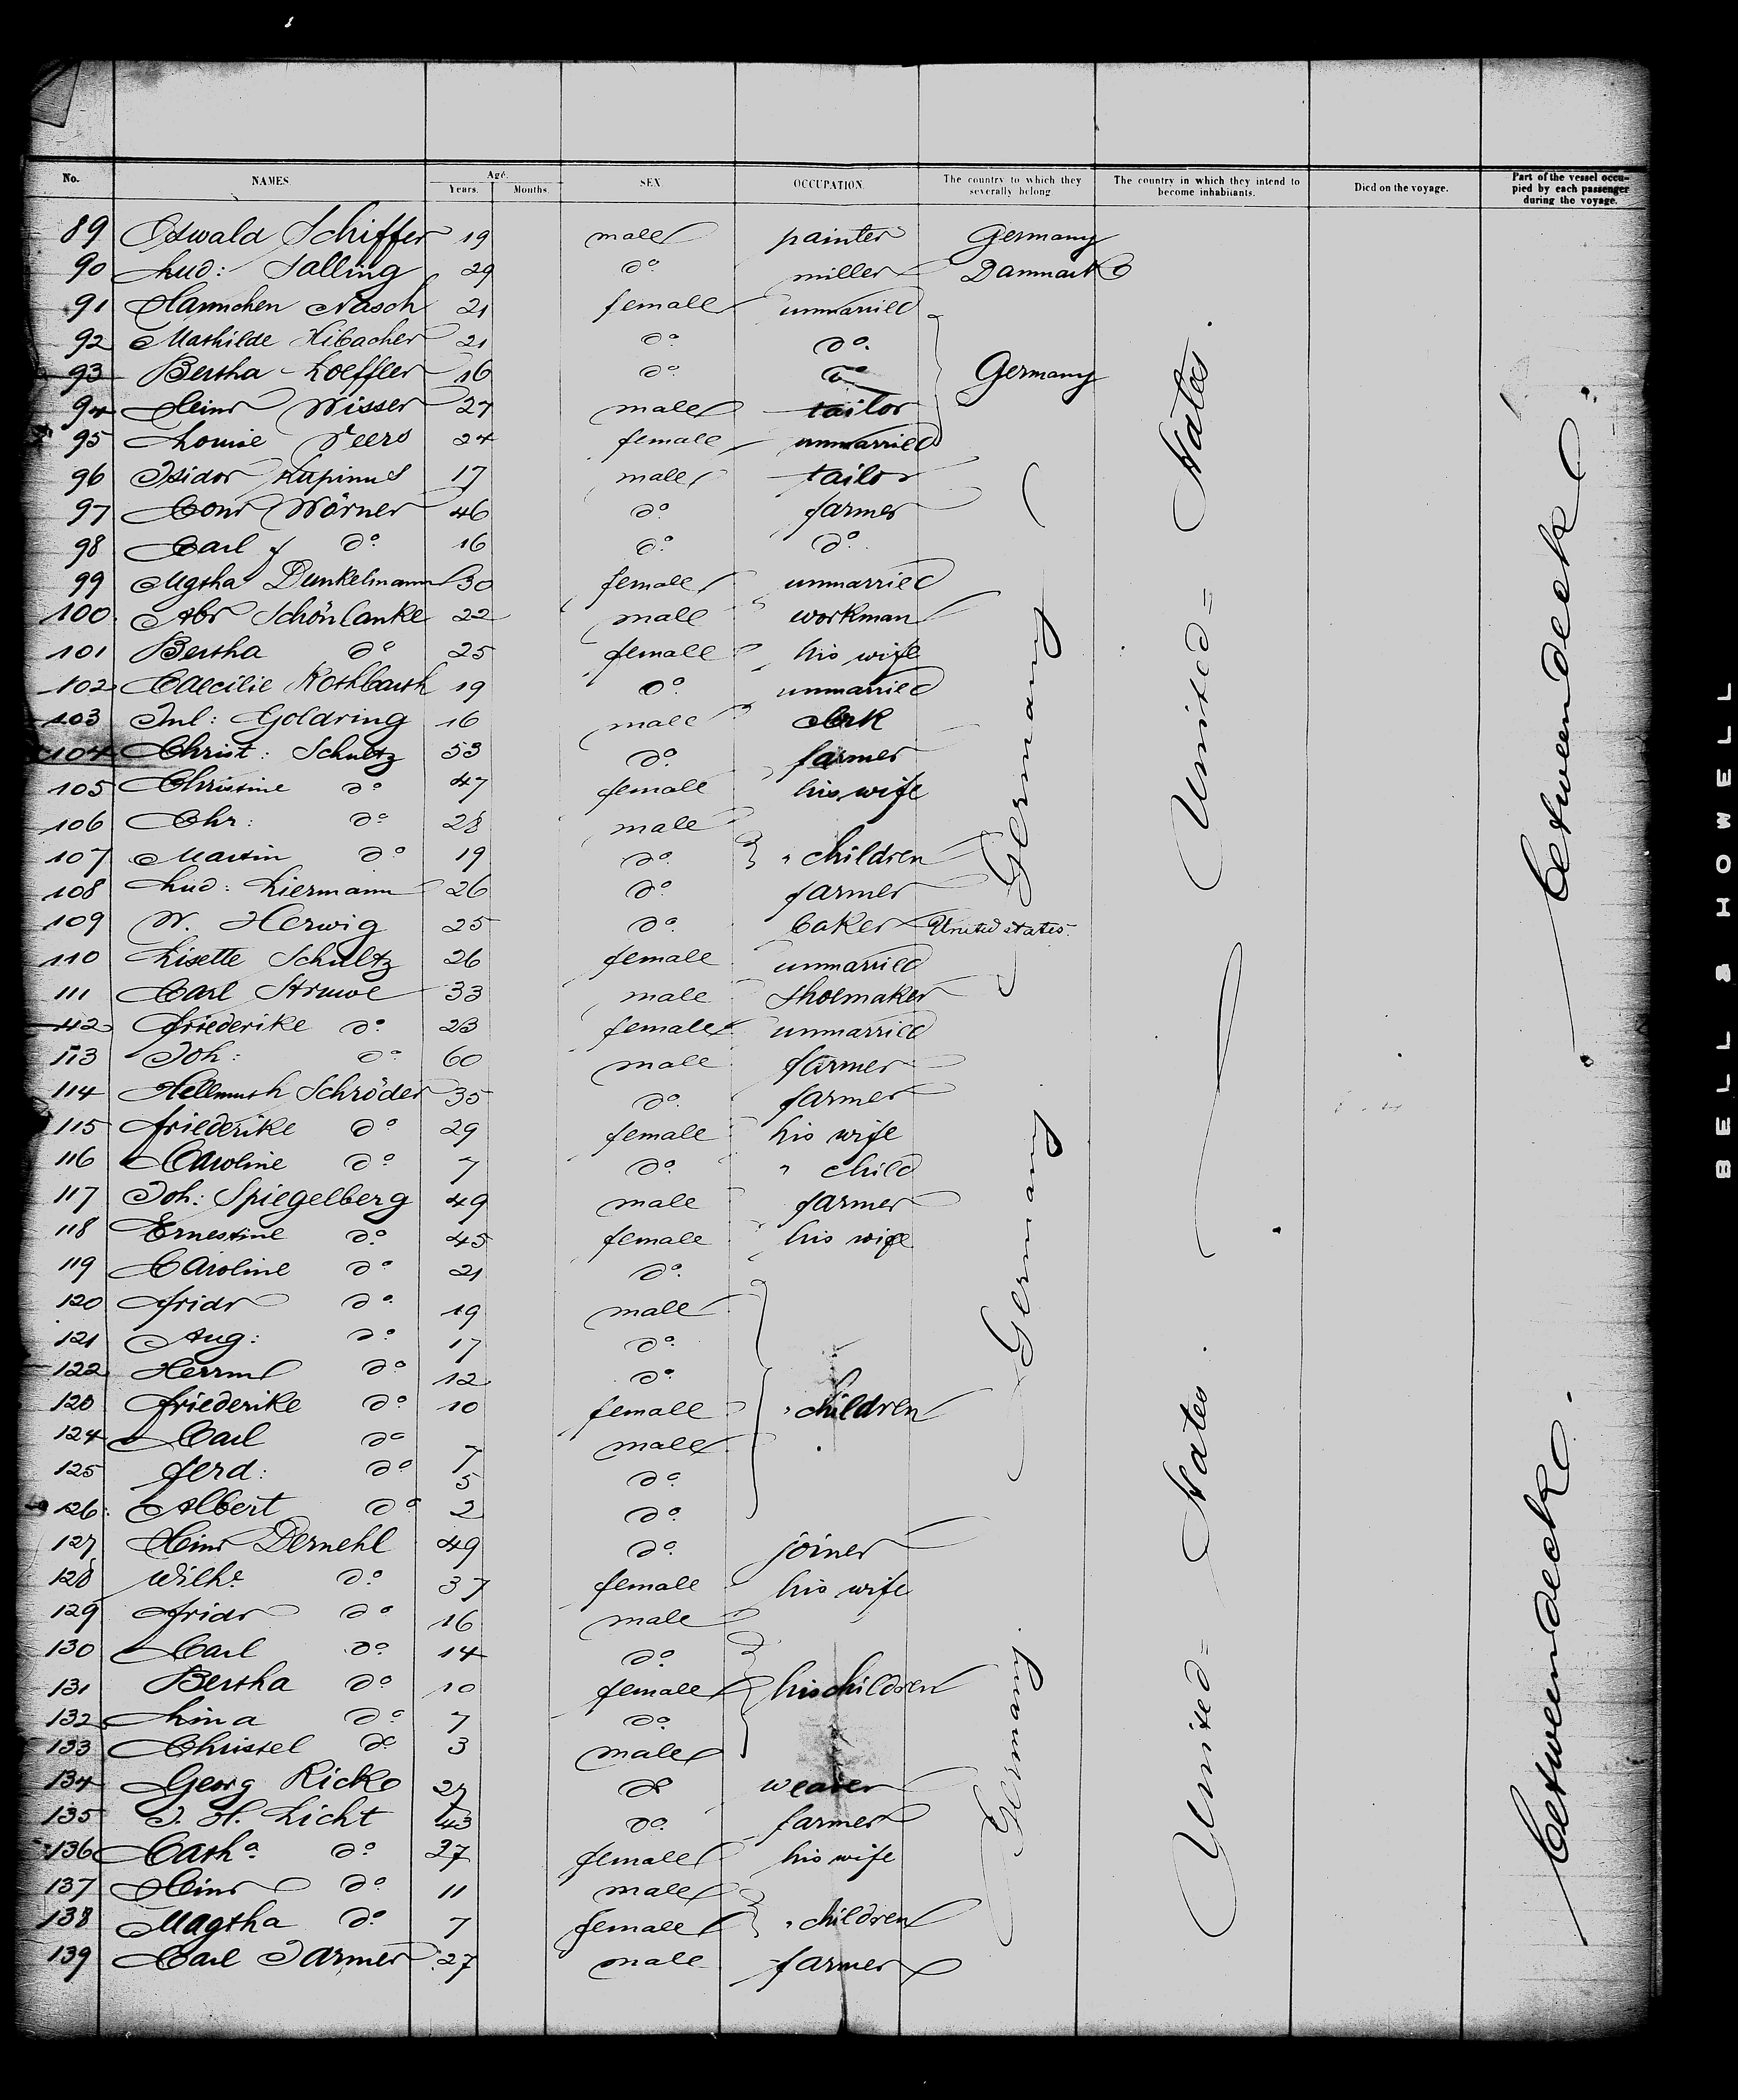 No. NAMES. Age. Years. Months. SEX. OCCUPATION. The country to which they severally belong The country in which they intend to become inhabitants. Died on the voyage. Part of the vessel occupied by each passenger during the voyage.
89 Oswald Schiffer 19 male painter Germany
90 Lud: Salling 29 do miller Danmark
91 Hannchen Nasch 21 female unmarried
92 Mathilde Hibacher 21 do do.
93 Bertha Loeffler 16 do do Germany
94 Heinr Wisser 27 male tailor
95 Louise Peers 24 female unmarried
96 Isidor Kupinus 17 male tailor
97 Conr Wörner 46 do farmer
98 Carl do 16 do do
99 Mgtha Dunkelmann 30 female unmarried
100. Abr Schönlanke 22 male workman
101 Bertha do 25 female his wife
102 Caecilie Rothbarth 19 do unmarried
103 Jul: Goldring 16 male clerk
104 Christ: Schultz 53 do farmer
105 Christine do 47 female his wife
106 Chr: do 28 male
107 Martin do 19 do " children
108 Lud: Liermann 26 do farmer
109 W. Herwig 25 do baker United states.
110 Lisette Schultz 26 female unmarried
111 Carl Struwe 33 male shoemaker
112 Friederike do 23 female unmarried
113 Joh: do 60 male farmer
114 Hellmuth Schröder 35 do farmer
115 Friederike do 29 female his wife
116 Caroline do 7 do " child
117 Joh: Spiegelberg 49 male farmer
118 Ernestine do 45 female his wife
119 Caroline do 21 do
120 Fridr do 19 male
121 Aug: do 17 do
122 Herrm do 12 do
123 Friederike do 10 female " children
124 Carl do 7 male
125 Ferd: do 5 do
126: Albert do 2 do
127 Heinr Dernehl 49 do joiner
128 Wilhe do 37 female his wife
129 Fridr do 16 male
130 Carl do 14 do
131 Bertha do 10 female his children
132 Lina do 7 do
133 Christel do 3 male
134 Georg Ricke 27 do weaver
135 J. H. Licht 43 do farmer
136 Catha do 37 female his wife
137 Heinr do 11 male
138 Magtha do 7 female " children
139 Carl Jarmer 27 male farmer
Germany
Germany
Germany
United= States.
United= States.
betweendeck.
betweendeck.
BELL & HOWELL